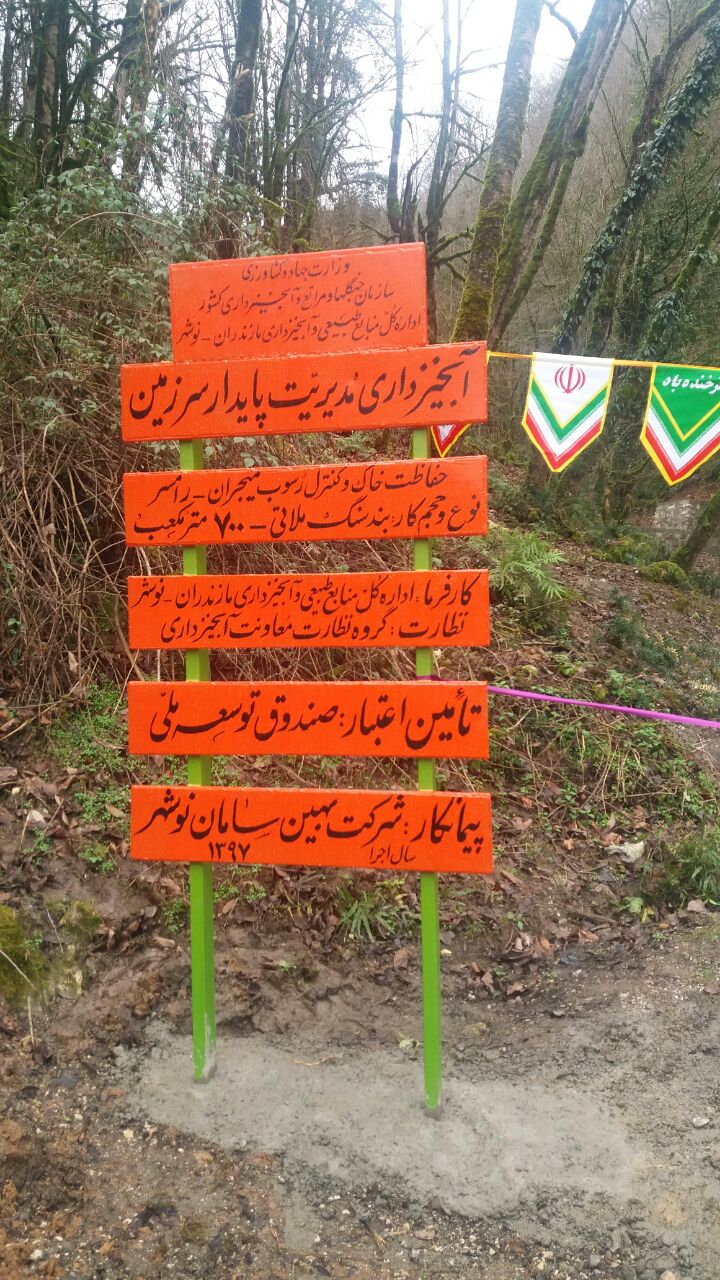 وزارت جهاد کشاورزی
سازمان جنگلها و مراتع و آبخیزداری کشور
اداره کلّ منابع طبیعی و آبخیزداری مازندران - نوشهر
آبخیزداری مُدیریّت پایدار سرزمین
حفاظت خاک و کنترل رسوب میجران - رامسر
نوع و حجم کار: بند سنگ ملاتی - ۷۰۰ مترمکعب
کارفرما: اداره کلّ منابع طبیعی و آبخیزداری مازندران - نوشهر
نظارت: گروه نظارت معاونت آبخیزداری
تأمین اعتبار: صندوق توسعه ملّی
پیمانکار: شرکت بهین سامان نوشهر
سال اجرا ۱۳۹۷